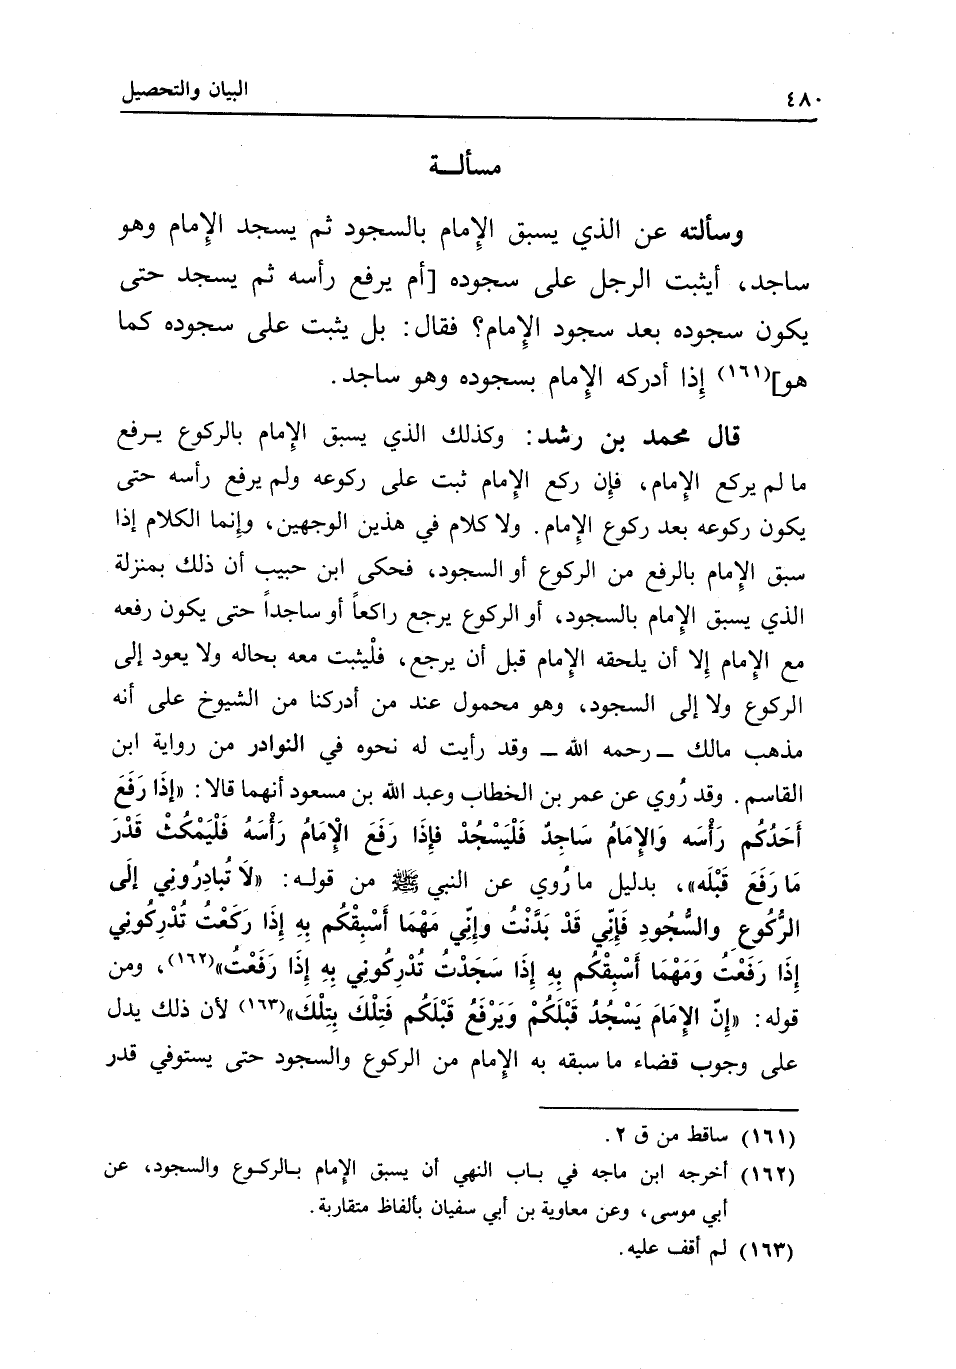 ٤٨٠ البيان والتحصيل
مسألـــة
وسألته عن الذي يسبق الإمام بالسجود ثم يسجد الإمام وهو
ساجد، أيثبت الرجل على سجوده [أم يرفع رأسه ثم يسجد حتى
يكون سجوده بعد سجود الإمام؟ فقال: بل يثبت على سجوده كما
هو](١٦١) إذا أدركه الإمام بسجوده وهو ساجد.
قال محمد بن رشد: وكذلك الذي يسبق الإمام بالركوع يـرفع
ما لم يركع الإمام، فإن ركع الإمام ثبت على ركوعه ولم يرفع رأسه حتى
يكون ركوعه بعد ركوع الإمام. ولا كلام في هذين الوجهين، وإنما الكلام إذا
سبق الإمام بالرفع من الركوع أو السجود، فحكى ابن حبيب أن ذلك بمنزلة
الذي يسبق الإمام بالسجود، أو الركوع يرجع راكعاً أو ساجداً حتى يكون رفعه
مع الإمام إلا أن يلحقه الإمام قبل أن يرجع، فلْيثبت معه بحاله ولا يعود إلى
الركوع ولا إلى السجود، وهو محمول عند من أدركنا من الشيوخ على أنه
مذهب مالك ــ رحمه الله ــ وقد رأيت له نحوه في النوادر من رواية ابن
القاسم. وقد رُوي عن عمر بن الخطاب وعبد الله بن مسعود أنهما قالا: «إذَا رَفَعَ
أَحَدُكُم رَأْسَه وَالإمَامُ سَاجِدٌ فَلْيَسْجُدْ فإذَا رَفَعَ الْإمَامُ رَأْسَهُ فَلْيَمْكثْ قَدْرَ
مَا رَفَعَ قَبْلَه»، بدليل ما رُوي عن النبي ﷺ من قولـه: «لَا تُبادِرُوني إلَى
الرُّكُوعِ والسُّجُودِ فَإنِّي قَدْ بَدَّنْتُ وإنِّي مَهْمَا أَسْبِقْكُم بِهِ إذَا رَكَعْتُ تُدْرِكُوني
إذَا رَفَعْتُ وَمَهْمَا أَسْبِقْكُم بِهِ إذَا سَجَدْتُ تُدْرِكُوني بِهِ إذَا رَفَعْتُ»(١٦٢)، ومن
قوله: «إنّ الإمَامَ يَسْجُدُ قَبْلَكُمْ وَيَرْفَعُ قَبْلَكُم فَتِلْكَ بِتِلْكَ»(١٦٣) لأن ذلك يدل
على وجوب قضاء ما سبقه به الإمام من الركوع والسجود حتى يستوفي قدر
(١٦١) ساقط من ق ٢.
(١٦٢) أخرجه ابن ماجه في بـاب النهي أن يسبق الإمام بـالركـوع والسجود، عن
أبي موسى، وعن معاوية بن أبي سفيان بألفاظ متقاربة.
(١٦٣) لم أقف عليه.